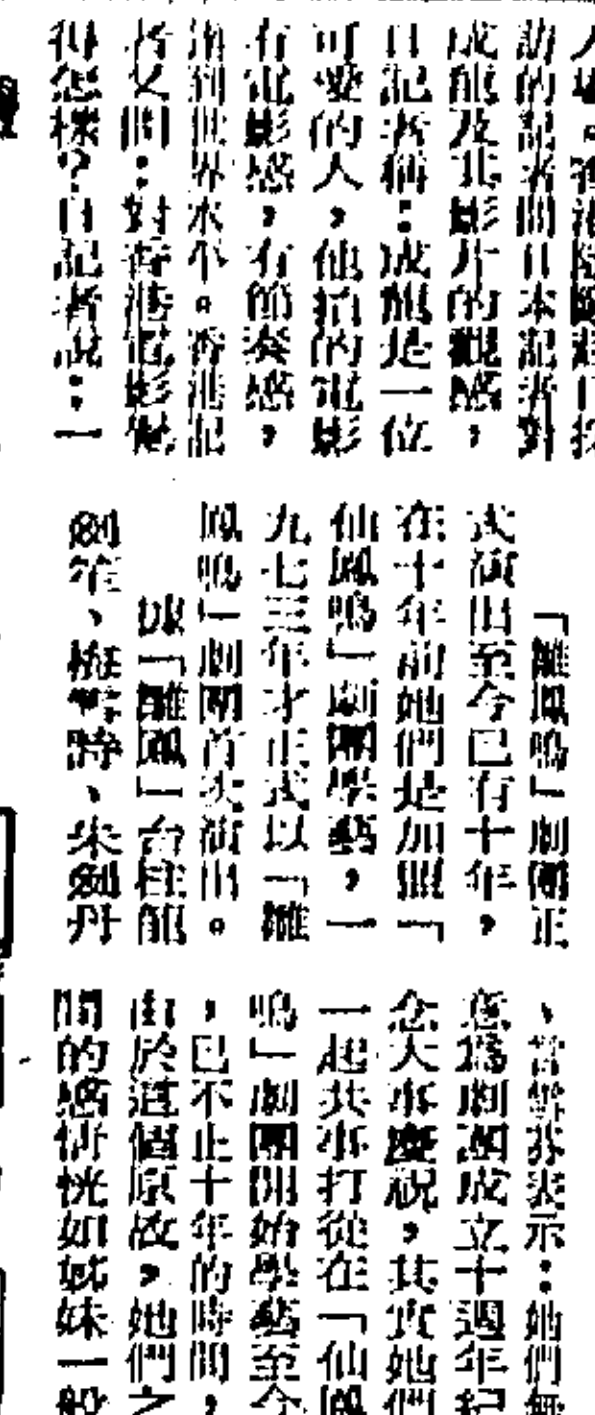 訪的記者問日本記者對
成龍及其影片的觀感，
日記者稱：成龍是一位
可愛的人，他拍的電影
有電影感，有節奏感，
達到世界水平。香港記
者又問：對香港電影覺
得怎樣？日記者說：一
「雛鳳鳴」劇團正
式演出至今已有十年，
在十年前她們是加盟「
仙鳳鳴」劇團學藝，一
九七三年才正式以「雛
鳳鳴」劇團首次演出。
據「雛鳳」台柱龍
劍笙、梅雪詩、朱劍丹
、言雪芬表示：她們無
意為劇團成立十週年紀
念大事慶祝，其實她們
一起共事打從在「仙鳳
鳴」劇團開始學藝至今
，已不止十年的時間，
由於這個原故，她們之
間的感情恍如姊妹一般